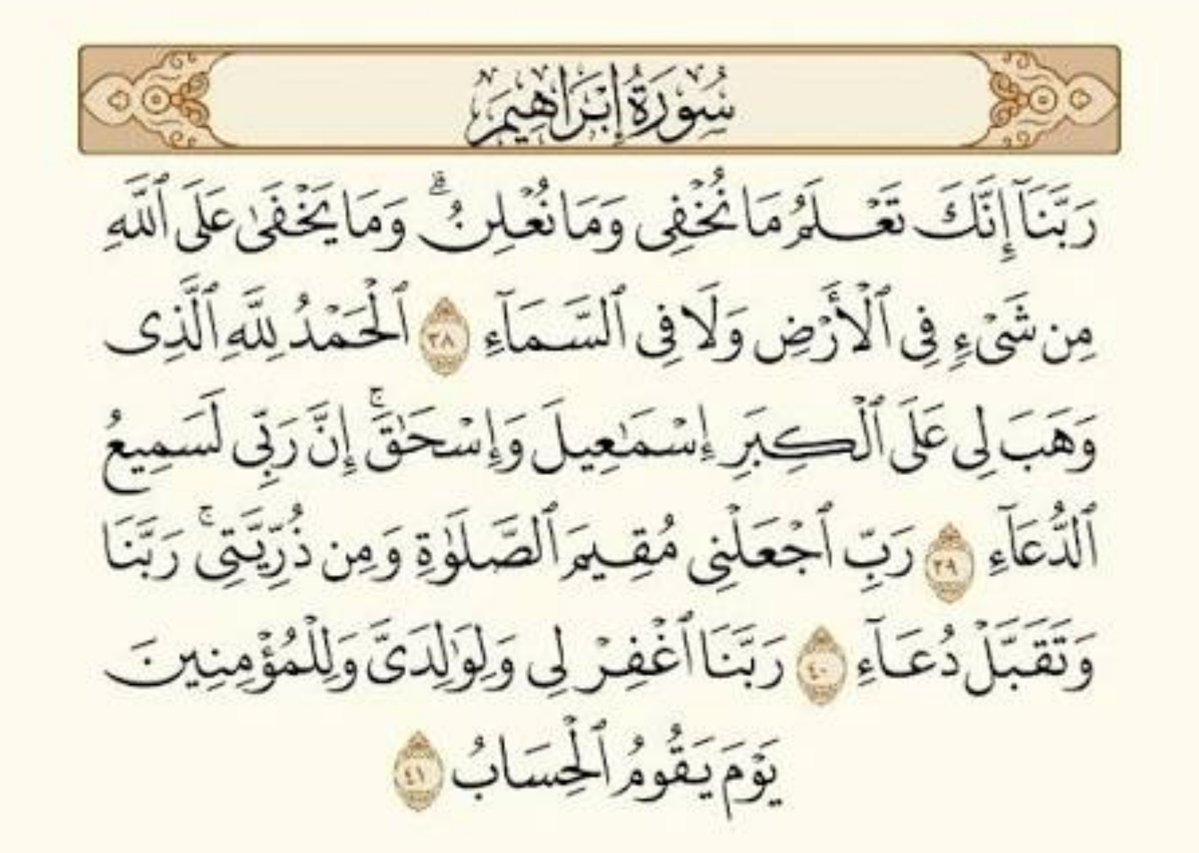 سُورَةُ إِبْرَاهِيمَ
رَبَّنَآ إِنَّكَ تَعْلَمُ مَا نُخْفِى وَمَا نُعْلِنُ ۗ وَمَا يَخْفَىٰ عَلَى ٱللَّهِ
مِن شَىْءٍ فِى ٱلْأَرْضِ وَلَا فِى ٱلسَّمَآءِ ٣٨ ٱلْحَمْدُ لِلَّهِ ٱلَّذِى
وَهَبَ لِى عَلَى ٱلْكِبَرِ إِسْمَـٰعِيلَ وَإِسْحَـٰقَ ۚ إِنَّ رَبِّى لَسَمِيعُ
ٱلدُّعَآءِ ٣٩ رَبِّ ٱجْعَلْنِى مُقِيمَ ٱلصَّلَوٰةِ وَمِن ذُرِّيَّتِى ۚ رَبَّنَا
وَتَقَبَّلْ دُعَآءِ ٤٠ رَبَّنَا ٱغْفِرْ لِى وَلِوَٰلِدَىَّ وَلِلْمُؤْمِنِينَ
يَوْمَ يَقُومُ ٱلْحِسَابُ ٤١